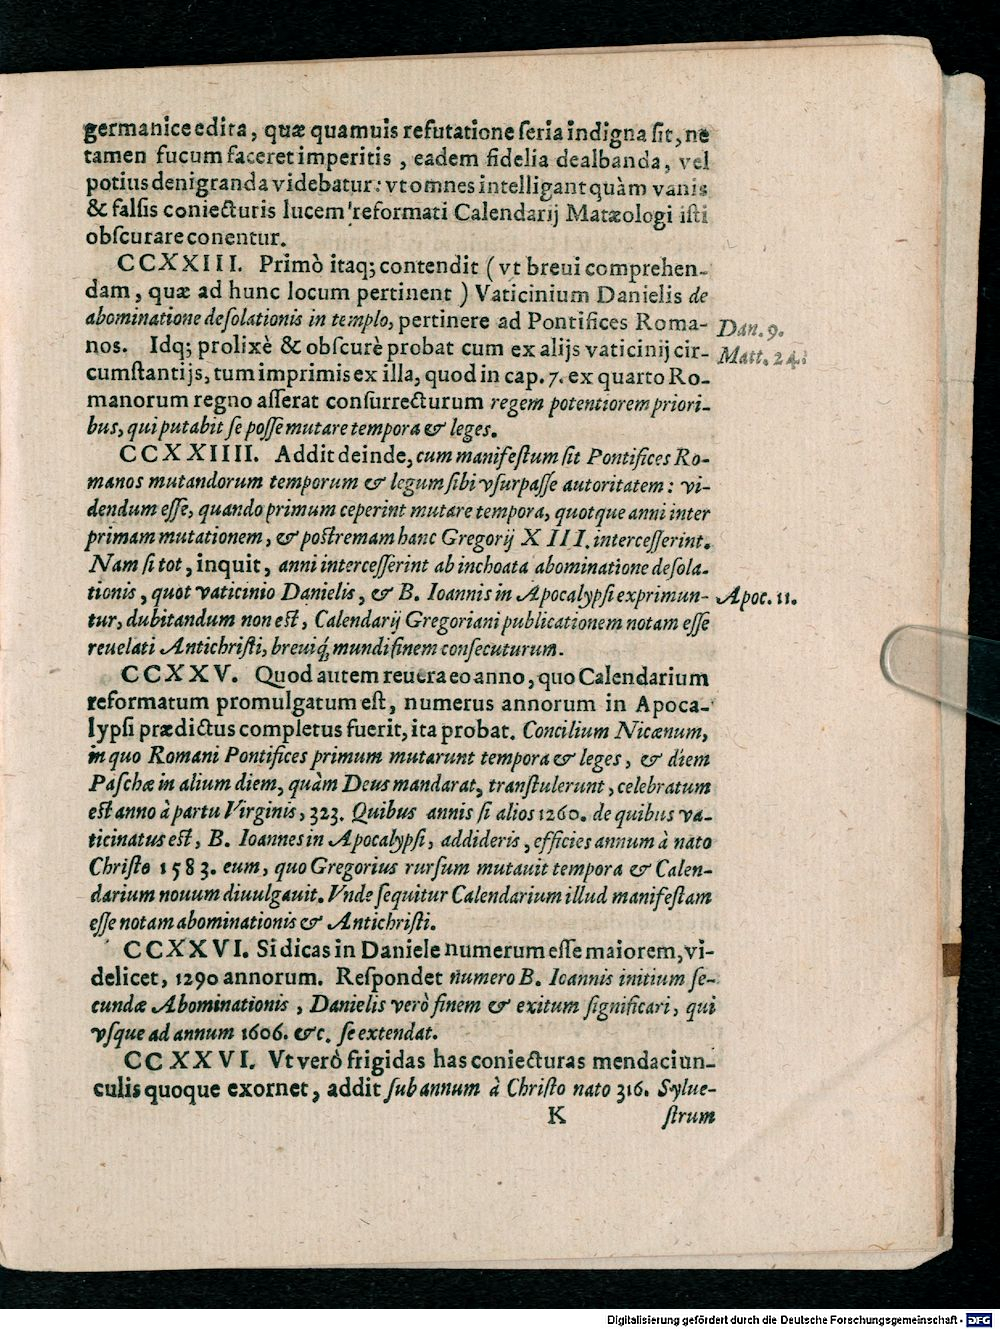 germanice edita, quæ quamuis refutatione seria indigna sit, ne
tamen fucum faceret imperitis, eadem fidelia dealbanda, vel
potius denigranda videbatur: vt omnes intelligant quàm vanis
& falsis coniecturis lucem reformati Calendarij Matæologi isti
obscurare conentur.
CCXXIII. Primò itaq; contendit (vt breui comprehen-
dam, quæ ad hunc locum pertinent) Vaticinium Danielis de
abominatione desolationis in templo, pertinere ad Pontifices Roma-
Dan. 9.
nos. Idq; prolixè & obscurè probat cum ex alijs vaticinij cir-
Matt. 24.
cumstantijs, tum imprimis ex illa, quod in cap. 7. ex quarto Ro-
manorum regno asserat consurrecturum regem potentiorem priori-
bus, qui putabit se posse mutare tempora & leges.
CCXXIIII. Addit deinde, cum manifestum sit Pontifices Ro-
manos mutandorum temporum & legum sibi vsurpasse autoritatem: vi-
dendum esse, quando primum ceperint mutare tempora, quotque anni inter
primam mutationem, & postremam hanc Gregorij XIII. intercesserint.
Nam si tot, inquit, anni intercesserint ab inchoata abominatione desola-
tionis, quot vaticinio Danielis, & B. Ioannis in Apocalypsi exprimun-
Apoc. 11.
tur, dubitandum non est, Calendarij Gregoriani publicationem notam esse
reuelati Antichristi, breuiq́; mundi finem consecuturum.
CCXXV. Quod autem reuera eo anno, quo Calendarium
reformatum promulgatum est, numerus annorum in Apoca-
lypsi prædictus completus fuerit, ita probat. Concilium Nicænum,
in quo Romani Pontifices primum mutarunt tempora & leges, & diem
Paschæ in alium diem, quàm Deus mandarat, transtulerunt, celebratum
est anno à partu Virginis, 323. Quibus annis si alios 1260. de quibus va-
ticinatus est, B. Ioannes in Apocalypsi, addideris, efficies annum à nato
Christo 1583. eum, quo Gregorius rursum mutauit tempora & Calen-
darium nouum diuulgauit. Vnde sequitur Calendarium illud manifestam
esse notam abominationis & Antichristi.
CCXXVI. Si dicas in Daniele numerum esse maiorem, vi-
delicet, 1290 annorum. Respondet numero B. Ioannis initium se-
cundæ Abominationis, Danielis verò finem & exitum significari, qui
vsque ad annum 1606. &c. se extendat.
CCXXVI. Vt verò frigidas has coniecturas mendaciun-
culis quoque exornet, addit sub annum à Christo nato 316. Sylue-
K strum
Digitalisierung gefördert durch die Deutsche Forschungsgemeinschaft - DFG